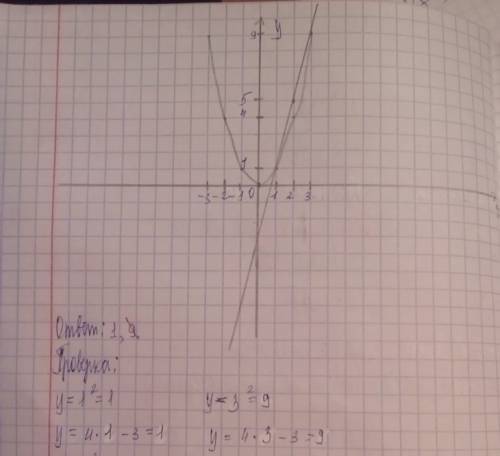 y
9
5
4
1
-3 -2 -1 0 1 2 3
Ответ: 1, 9.
Проверка:
y = 1² = 1 y = 3² = 9
y = 4 · 1 - 3 = 1 y = 4 · 3 - 3 = 9